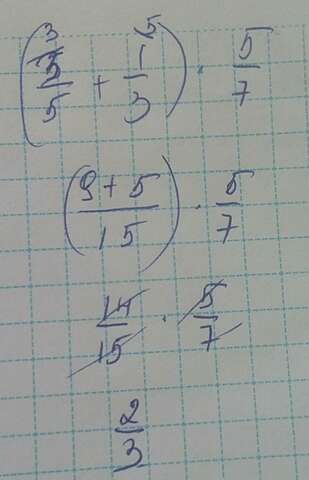 (3/5 + 1/3) · 5/7
(9 + 5 / 15) · 5/7
14/15 · 5/7
2/3